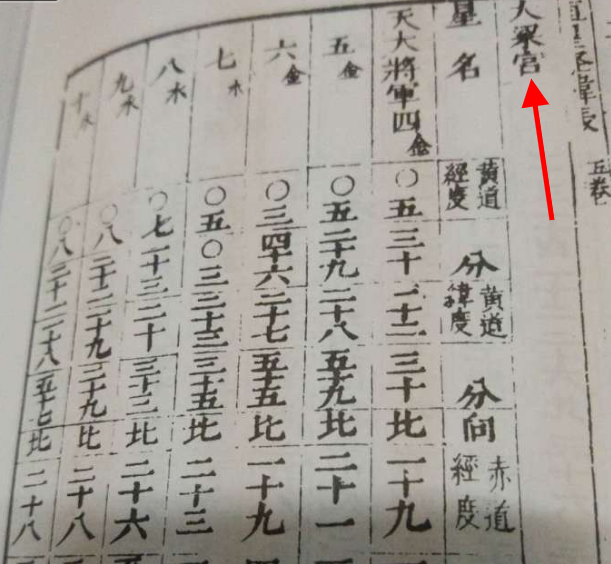 恒星經緯表 五卷
大梁宮
星名 黃道經度 分 黃道緯度 分 向 赤道經度
天大將軍四 金 〇五 三十 二十二 三十 北 一十九
五 金 〇五 二十九 二十八 五十九 北 二十一
六 金 〇三 四十六 二十七 五十五 北 一十九
七 水 〇五 〇三 三十三 三十五 北 二十三
八 水 〇七 二十三 三十 三十二 北 二十六
九 水 〇八 二十二 二十九 三十九 北 二十八
十 水 〇八 三十二 二十八 五十七 北 二十八